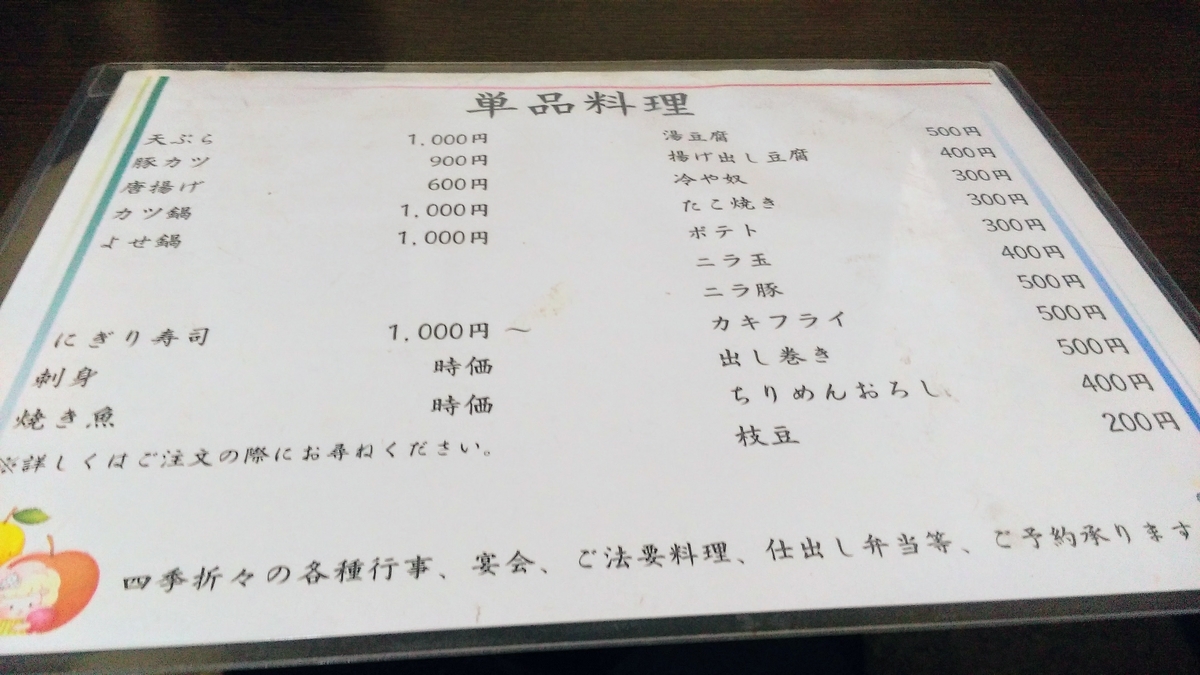 単品料理
天ぷら 1,000円
豚カツ 900円
唐揚げ 600円
カツ鍋 1,000円
よせ鍋 1,000円
にぎり寿司 1,000円 ～
刺身 時価
焼き魚 時価
※詳しくはご注文の際にお尋ねください。
湯豆腐 500円
揚げ出し豆腐 400円
冷や奴 300円
たこ焼き 300円
ポテト 300円
ニラ玉 400円
ニラ豚 500円
カキフライ 500円
出し巻き 500円
ちりめんおろし 400円
枝豆 200円
四季折々の各種行事、宴会、ご法要料理、仕出し弁当等、ご予約承ります